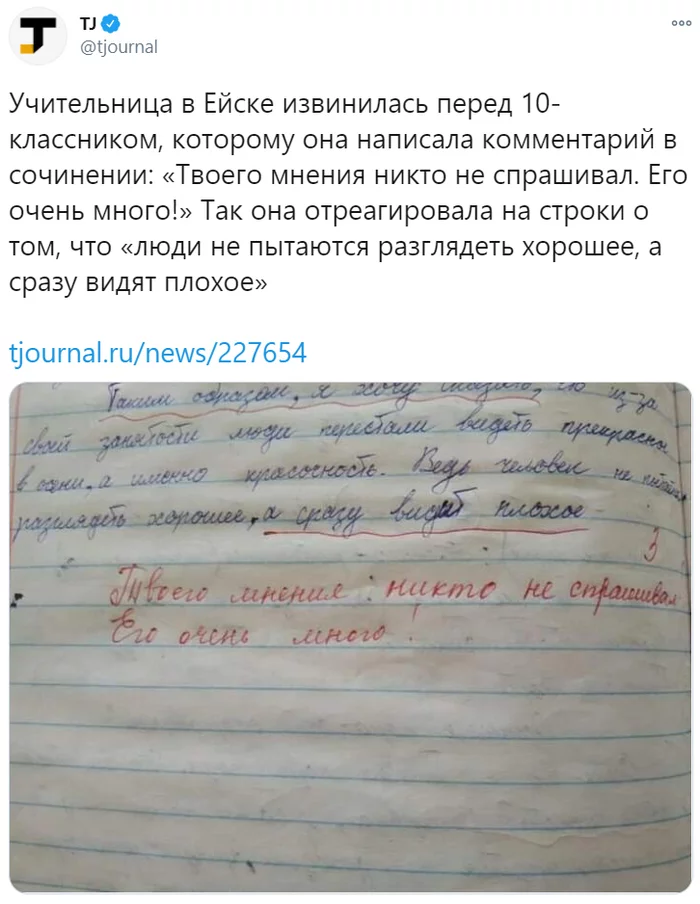 TJ
@tjournal
Учительница в Ейске извинилась перед 10-
классником, которому она написала комментарий в
сочинении: «Твоего мнения никто не спрашивал. Его
очень много!» Так она отреагировала на строки о
том, что «люди не пытаются разглядеть хорошее, а
сразу видят плохое»
tjournal.ru/news/227654
Таким образом, я хочу сказать, из-за
своей занятости люди перестали видеть
в осени, а именно красочность. Ведь человек не
разглядеть хорошее, а сразу видит плохое
3
Твоего мнения никто не спрашивал
Его очень много!